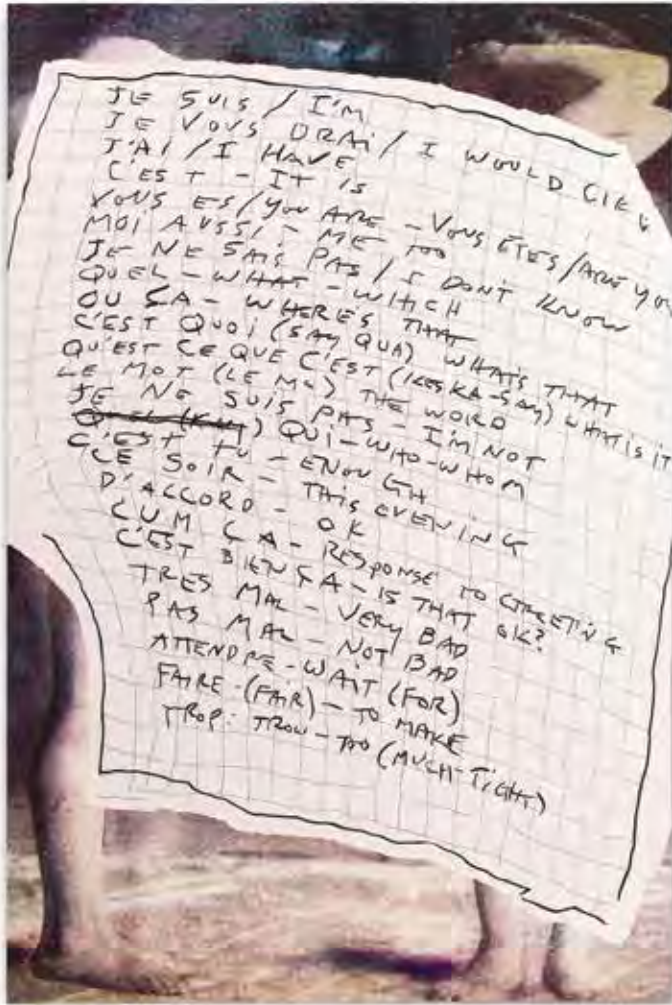 JE SUIS / I'M
JE VOUS DRAI / I WOULD LIKE
J'AI / I HAVE
C'EST - IT IS
VOUS ES / YOU ARE - VOUS ÊTES / ARE YOU
MOI AUSSI - ME TOO
JE NE SAIS PAS / I DONT KNOW
QUEL - WHAT - WHICH
OU ÇA - WHERES THAT
C'EST QUOI (SAY QUA) WHATS THAT
QU'EST CE QUE C'EST (KESKA-SAY) WHAT IS IT
LE MOT (LE MO) THE WORD
JE NE SUIS PAS - I'M NOT
QUI - WHO - WHOM
C'EST TU - ENOUGH
CE SOIR - THIS EVENING
D'ACCORD - OK
CUM ÇA - RESPONSE TO GREETING
C'EST BIEN ÇA - IS THAT OK?
TRES MAL - VERY BAD
PAS MAL - NOT BAD
ATTENDRE - WAIT (FOR)
FAIRE - (FAIR) - TO MAKE
TROP: TROW - TOO (MUCH-TIGHT)